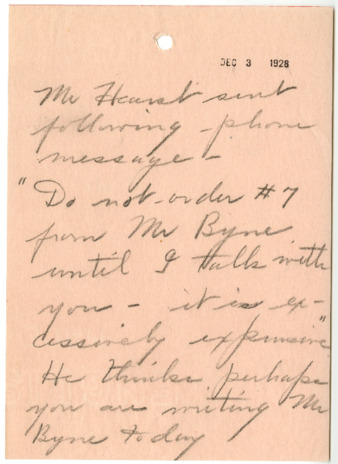 DEC 3 1928
Mr Hearst sent
following phone
message -
"Do not order #7
from Mr Byne
until I talk with
you - it is ex-
cessively expensive"
He thinks perhaps
you are writing Mr
Byne today